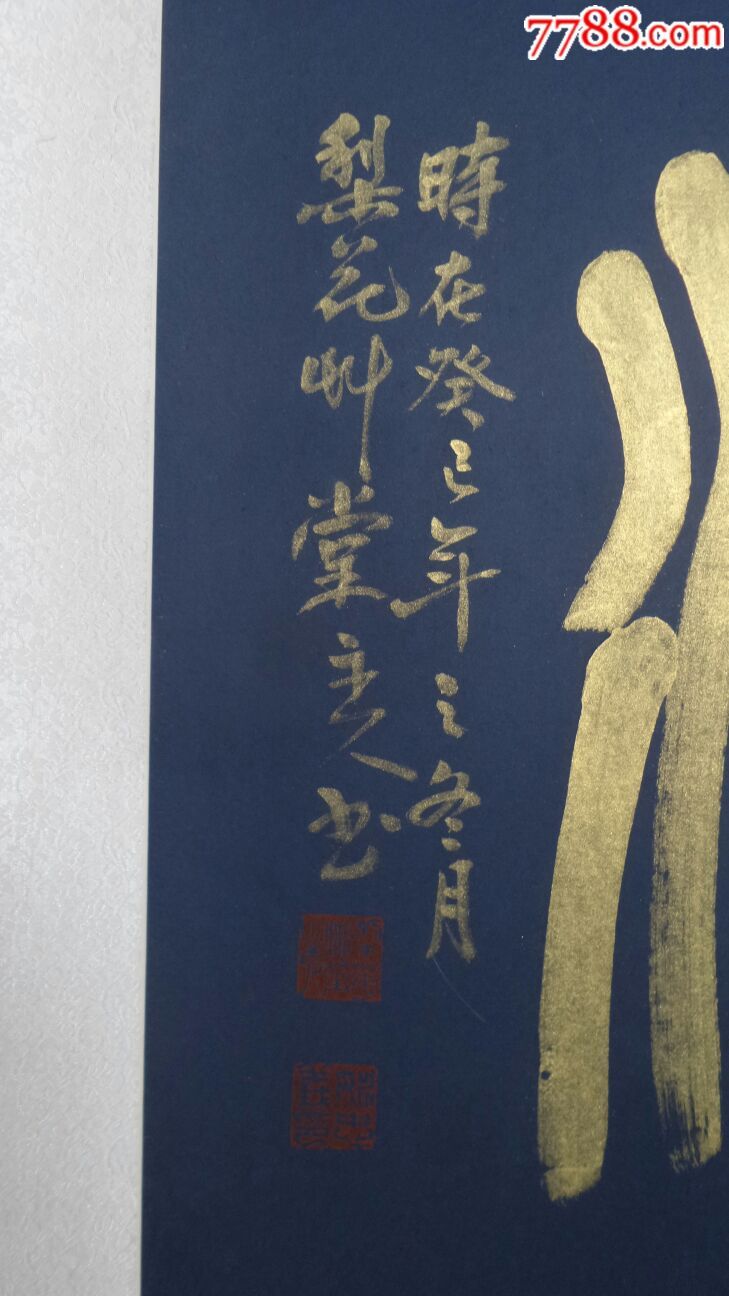 7788.com
時在癸已年之冬月
梨花艸堂主人书